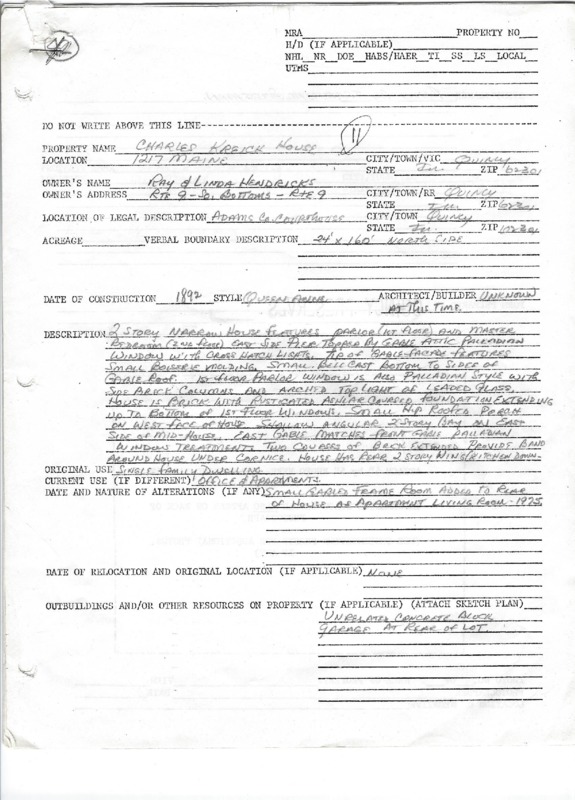 MRA PROPERTY NO
H/D (IF APPLICABLE)
NHL NR DOE HABS/HAER TI SS LS LOCAL
UTMS
DO NOT WRITE ABOVE THIS LINE
11
PROPERTY NAME CHARLES KREICK HOUSE
LOCATION 1217 MAINE CITY/TOWN/VIC QUINCY
STATE ILL. ZIP 62301
OWNER'S NAME RAY & LINDA HENDRICKS
OWNER'S ADDRESS RTE 9 - SO. BOTTOMS - RTE 9 CITY/TOWN/RR QUINCY
STATE ILL. ZIP 62301
LOCATION OF LEGAL DESCRIPTION ADAMS CO. COURTHOUSE CITY/TOWN QUINCY
STATE ILL. ZIP 62301
ACREAGE VERBAL BOUNDARY DESCRIPTION 24' X 160' NORTH SIDE
DATE OF CONSTRUCTION 1892 STYLE QUEEN ANNE ARCHITECT/BUILDER UNKNOWN
AT THIS TIME.
DESCRIPTION 2 STORY NARROW HOUSE FEATURES PARLOR (1ST FLOOR) AND MASTER
BEDROOM (2ND FLOOR) EAST SIDE PIER TOPPED BY GABLE ATTIC PALLADIAN
WINDOW WITH CROSS HATCH LIGHTS. TIP OF GABLE FACADE FEATURES
SMALL MOLDING. SMALL BELL CAST BOTTOM TO SIDES OF
GABLE ROOF. 1ST FLOOR PARLOR WINDOW IS ALSO PALLADIAN STYLE WITH
SIDE BRICK COLUMNS AND ARCHED TOP LIGHT OF LEADED GLASS.
HOUSE IS BRICK WITH RUSTICATED ASHLAR COURSED FOUNDATION EXTENDING
UP TO BOTTOM OF 1ST FLOOR WINDOWS. SMALL HIP ROOFED PORCH
ON WEST FACE OF HOUSE SHALLOW ANGULAR 2 STORY BAY ON EAST
SIDE OF MID-HOUSE. EAST GABLE MATCHES FRONT GABLE PALLADIAN
WINDOW TREATMENT. TWO COURSES OF BRICK EXTENDED PROVIDE BAND
AROUND HOUSE UNDER CORNICE. HOUSE HAS REAR 2 STORY WING (KITCHEN DOWN.
ORIGINAL USE SINGLE FAMILY DWELLING
CURRENT USE (IF DIFFERENT) OFFICE & APARTMENTS
DATE AND NATURE OF ALTERATIONS (IF ANY) SMALL GABLED FRAME ROOM ADDED TO REAR
OF HOUSE AS APARTMENT LIVING ROOM - 1975
DATE OF RELOCATION AND ORIGINAL LOCATION (IF APPLICABLE) NONE
OUTBUILDINGS AND/OR OTHER RESOURCES ON PROPERTY (IF APPLICABLE) (ATTACH SKETCH PLAN)
UNRELATED CONCRETE BLOCK
GARAGE AT REAR OF LOT.